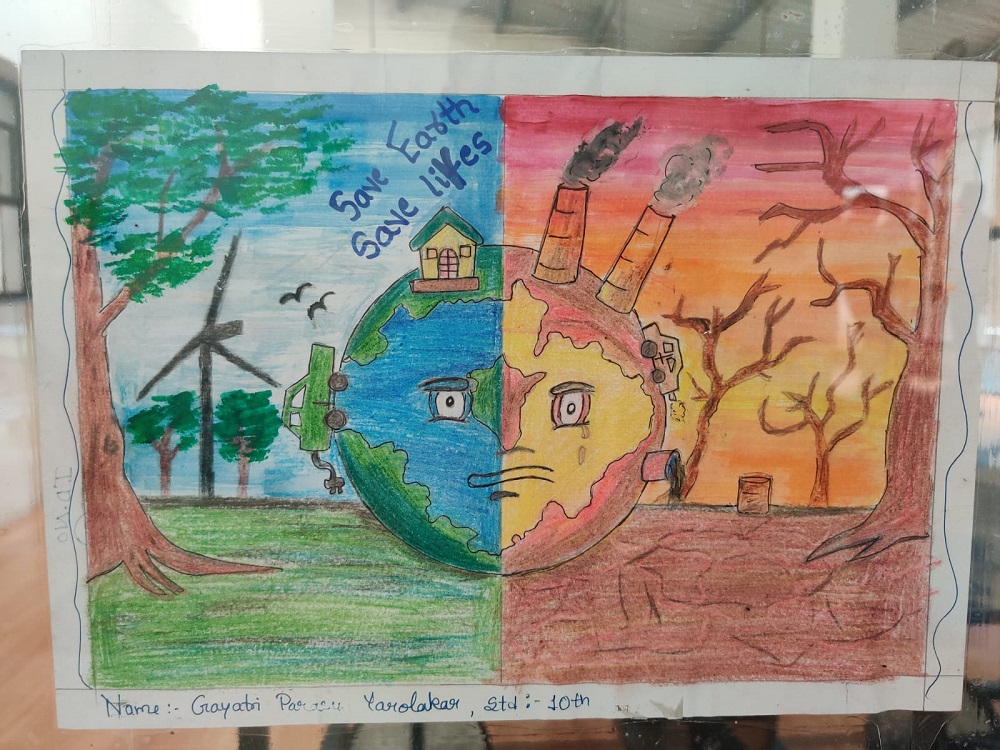 Save Earth
Save lives
Name:- Gayatri Yarolakar, Std:- 10th